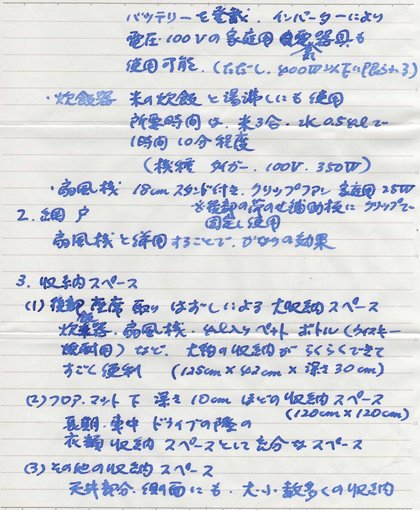 バッテリーを蓄電、インバーターにより
電圧・100Vの家庭用電器具も
使用可能、(ただし、400W以下に限られる)
・炊飯器 米の炊飯と湯沸しにも使用
所要時間は、米3合・水0.5ℓで
1時間10分程度
(機種 タイガー、100V、350W)
・扇風機 18cmスタンド付き、クリップファン 家庭用25W
※後部の荷のせ補助板にクリップで
固定し使用
2. 網戸
扇風機と併用することで、かなりの効果
3. 収納スペース
(1) 後部座席取りはずしによる大収納スペース
炊飯器・扇風機・4ℓ入りペットボトル(ウイスキー
焼酎用)など、大物の収納がらくらくできて
すごく便利 (125cm×42cm×深さ30cm)
(2) フロア、マット下 深さ10cmほどの収納スペース
(120cm×120cm)
長期・車中ドライブの際の
衣類収納スペースとして充分なスペース
(3) その他の収納スペース
天井部分、側面にも、大・小数多くの収納